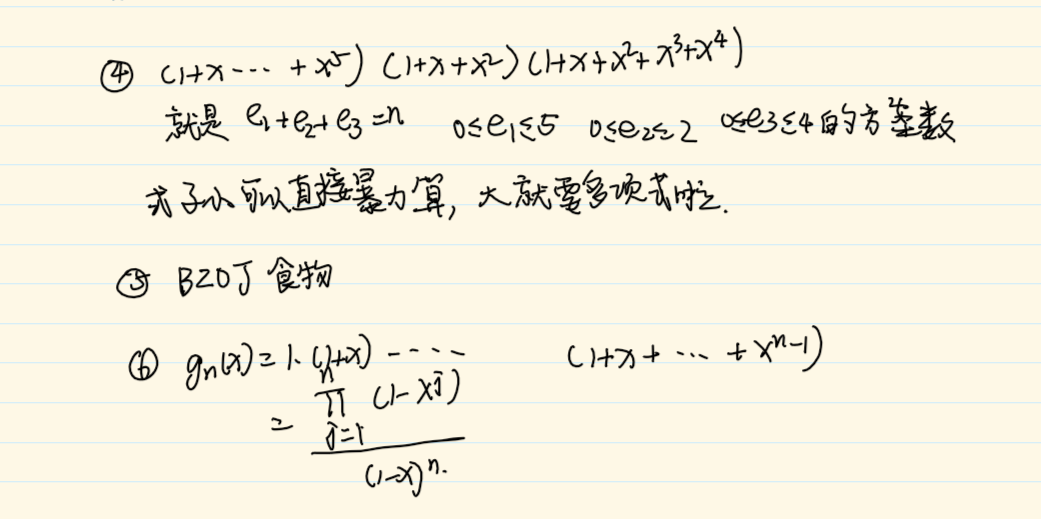 ④ (1+x ··· + x⁵) (1+x+x²) (1+x+x²+x³+x⁴)
就是 e₁+e₂+e₃=n 0≤e₁≤5 0≤e₂≤2 0≤e₃≤4 的方案数
式子小可以直接暴力算，大就要多项式啦.
⑤ BZOJ 食物
⑥ gₙ(x) = 1·(1+x) ····· (1+x+ ··· + xⁿ⁻¹)
= ∏ⁿⱼ₌₁ (1-xʲ) / (1-x)ⁿ.